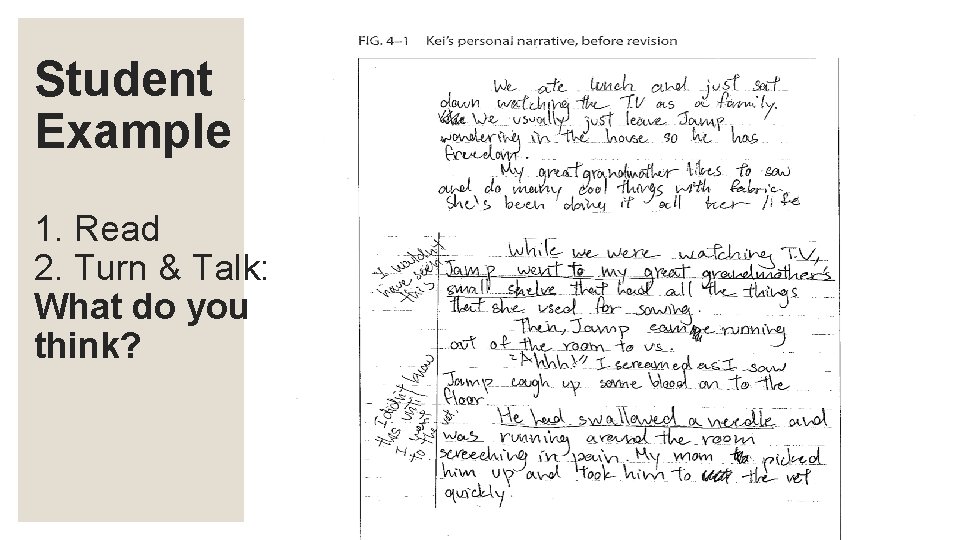 Student
Example
1. Read
2. Turn & Talk:
What do you
think?
FIG. 4–1 Kei's personal narrative, before revision
We ate lunch and just sat
down watching the T.V as a family.
We usually just leave Jamp
wondering in the house so he has
freedom.
My great grandmother likes to saw
and do many cool things with fabric.
She's been doing it all her life
I wouldn't
have seen
this
While we were watching T.V,
Jamp went to my great grandmother's
small shelve that had all the things
that she used for sowing.
Then, Jamp came running
out of the room to us.
"Ahhh!" I screamed as I saw
Jamp cough up some blood on to the
floor.
I didn't know
this until
I went
to the vet.
He had swallowed a needle and
was running around the room
screeching in pain. My mom picked
him up and took him to the vet
quickly.